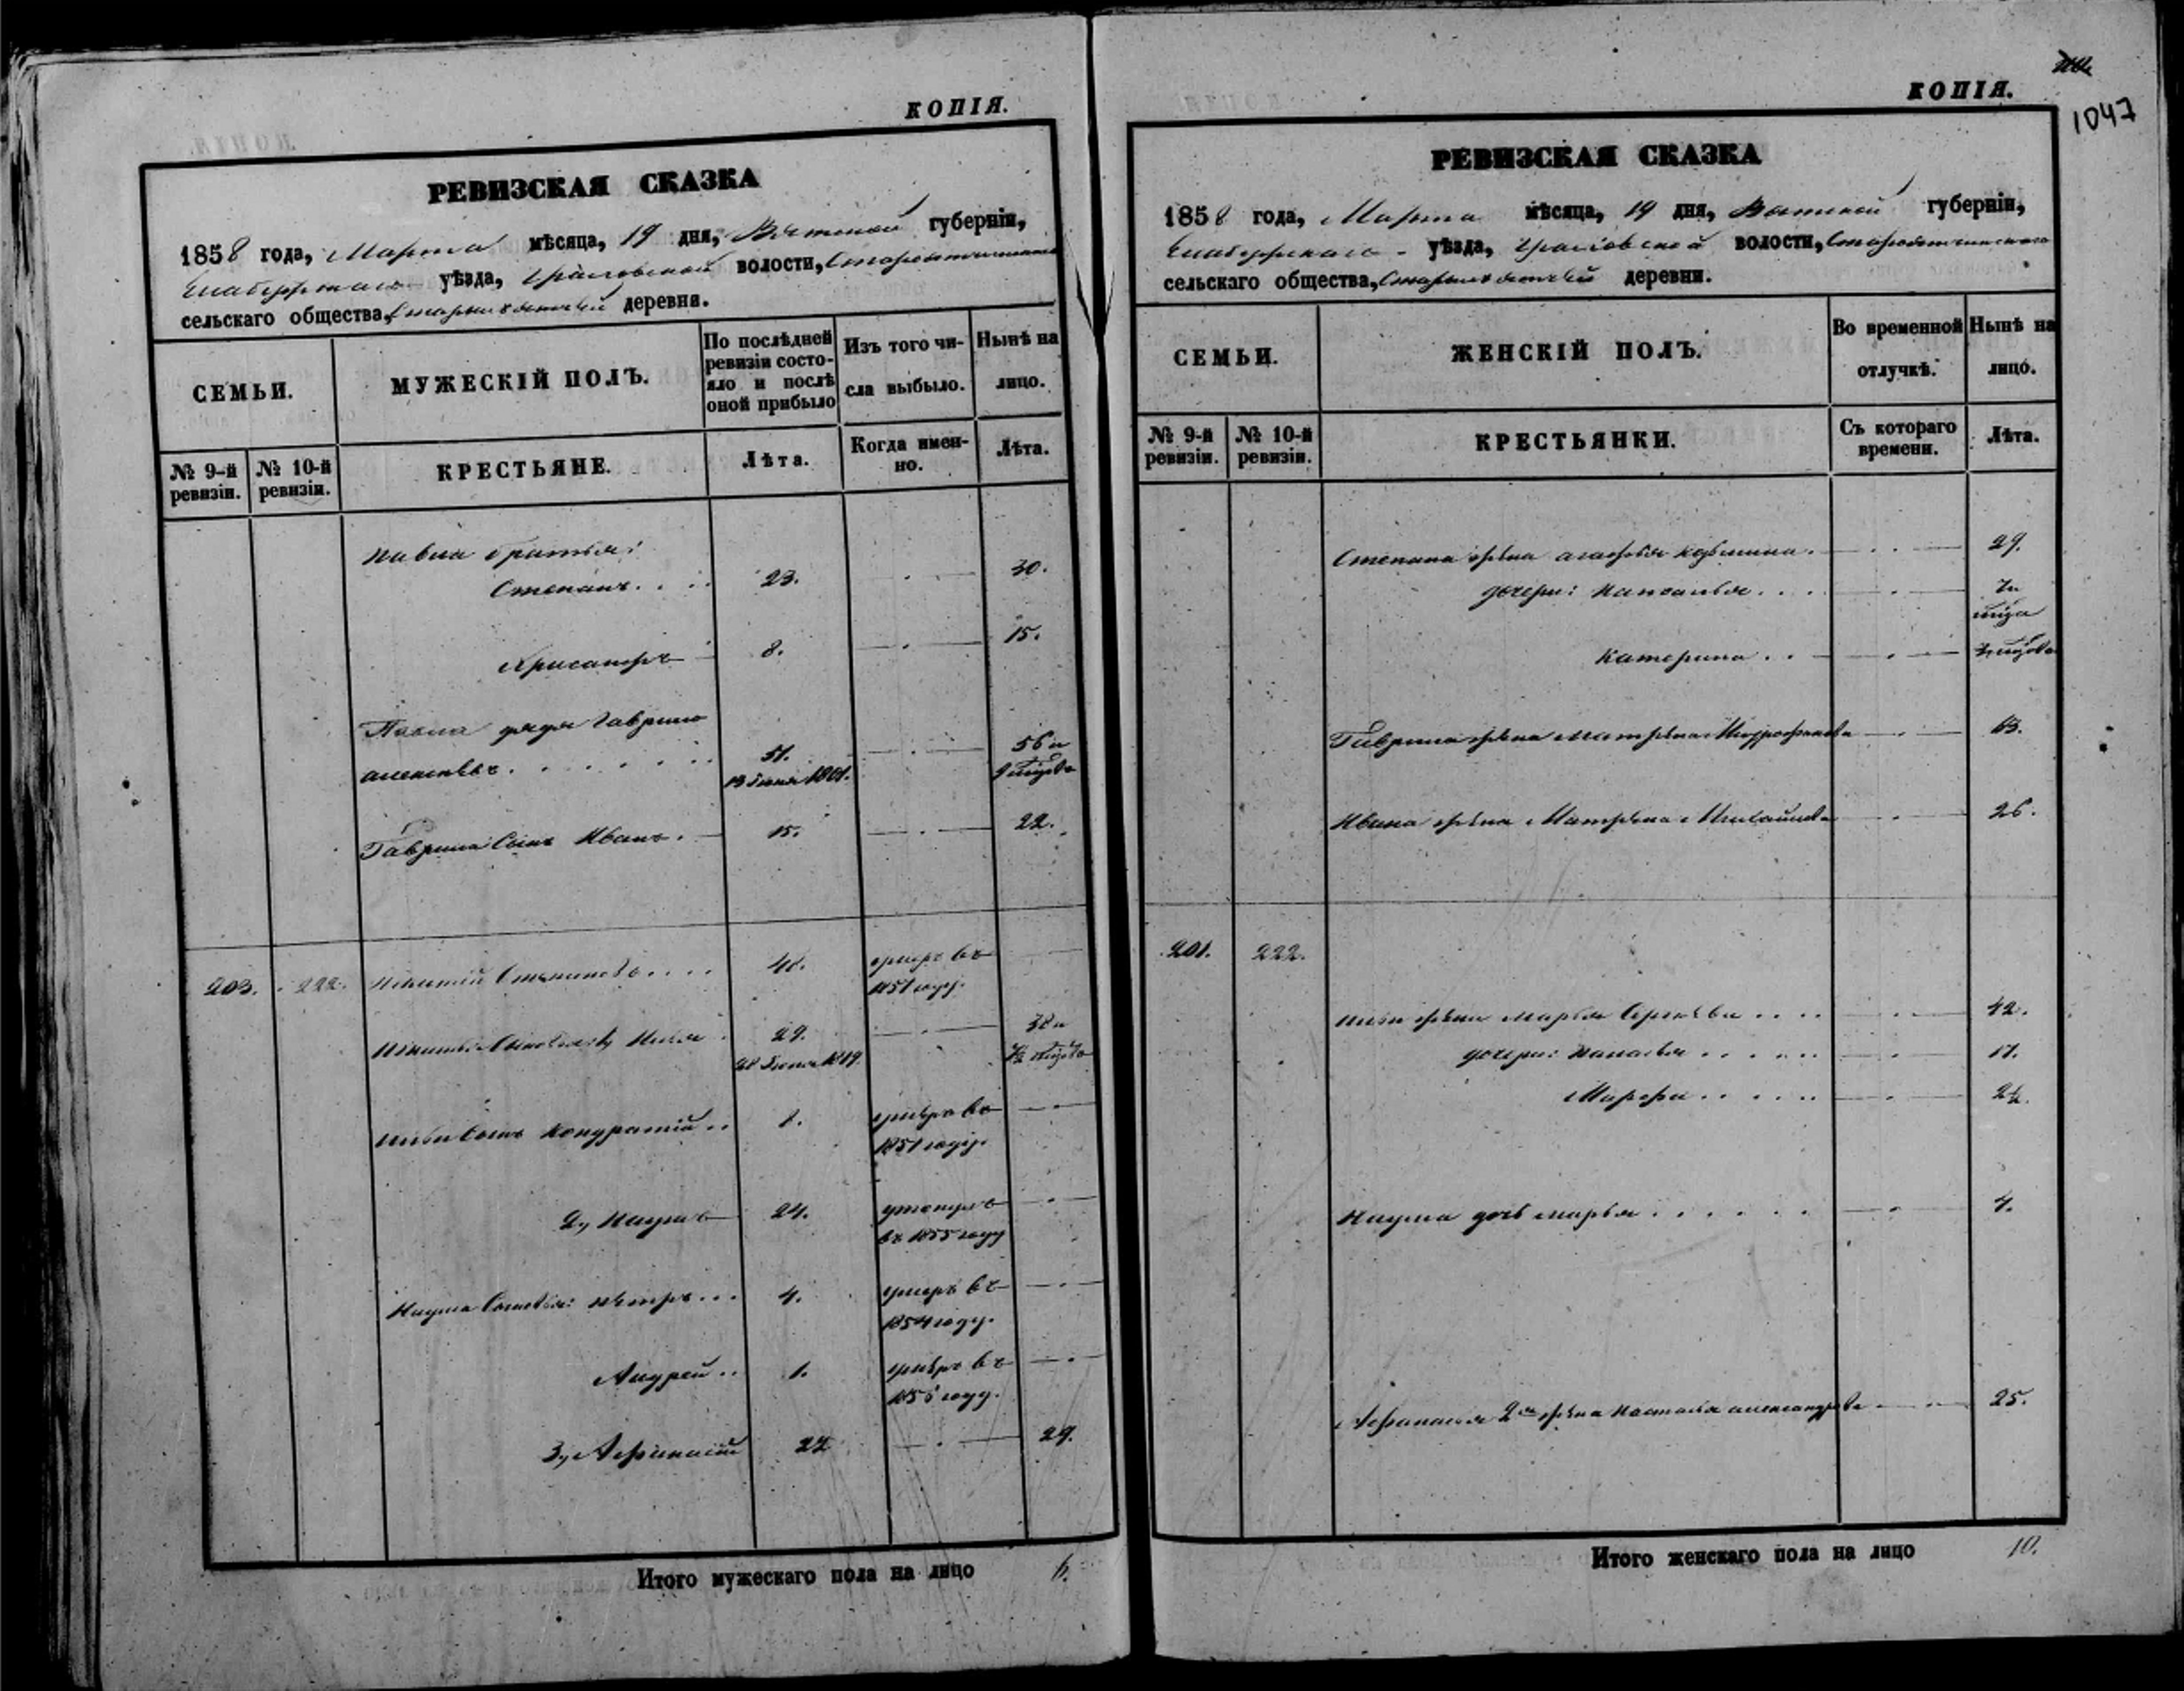 КОПІЯ.
РЕВИЗСКАЯ СКАЗКА
1858 года, Марта мѣсяца, 19 дня, Вятской губерніи,
Елабужскаго уѣзда, Граховской волости,
сельскаго общества, деревни.
СЕМЬИ.
МУЖЕСКІЙ ПОЛЪ.
По послѣдней ревизіи состояло и послѣ оной прибыло
Изъ того числа выбыло.
Нынѣ на лицо.
№ 9-й ревизіи.
№ 10-й ревизіи.
КРЕСТЬЯНЕ.
Лѣта.
Когда именно.
Лѣта.
Павла братья:
Степанъ. 23. 30.
Хрисанфъ 8. 15.
Павла дядя Гаврило
Алексѣевъ. 51. 56 и
13 Іюня 1801. 9 мѣсяцовъ
Гаврила сынъ Иванъ. 15. 22.
203. 222. Игнатій Степановъ. 48. умеръ въ
1851 году.
Игнатья сыновья: 1, Илья 29. 38 и
28 Іюня 1819.
Ильи сынъ Кондратій 1. умеръ въ
1851 году.
2, Наумъ 24. утонулъ
въ 1855 году
Наума сыновья: Петръ 4. умеръ въ
1854 году.
Андрей 1. умеръ въ
году.
3, Афанасій 22 29.
Итого мужескаго пола на лицо 6.
КОПІЯ.
1047
РЕВИЗСКАЯ СКАЗКА
1858 года, Марта мѣсяца, 19 дня, Вятской губерніи,
Елабужскаго уѣзда, Граховской волости,
сельскаго общества, деревни.
СЕМЬИ.
ЖЕНСКІЙ ПОЛЪ.
Во временной отлучкѣ.
Нынѣ на лицо.
№ 9-й ревизіи.
№ 10-й ревизіи.
КРЕСТЬЯНКИ.
Съ котораго времени.
Лѣта.
Степана жена Агафья Козьмина. 29.
дочери:
Катерина
Гаврила жена Матрена 63.
Ивана жена Матрена Михайлова 26.
201. 222.
Ильи жена Марья Сергѣева 42.
дочери: 17.
Марфа
Наума дочь Марья 4.
Афанасья 2я жена Настасья Александрова 25.
Итого женскаго пола на лицо 10.